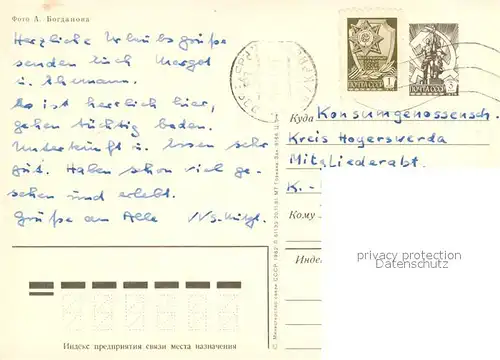 Фото А. Богданова
Herzliche Urlaubsgrüße
senden Euch Margot
u. Ehemann.
Es ist herrlich hier,
gehen tüchtig baden.
Unterkunft u. Essen sehr
gut. Haben schon viel ge-
sehen und erlebt.
Grüße an Alle
ПОЧТА СССР
ПОЧТА СССР
Куда Konsumgenossensch.
Kreis Hoyerswerda
Mitgliederabt.
K. -
Кому
privacy protection
Datenschutz
Инде
Индекс предприятия связи места назначения